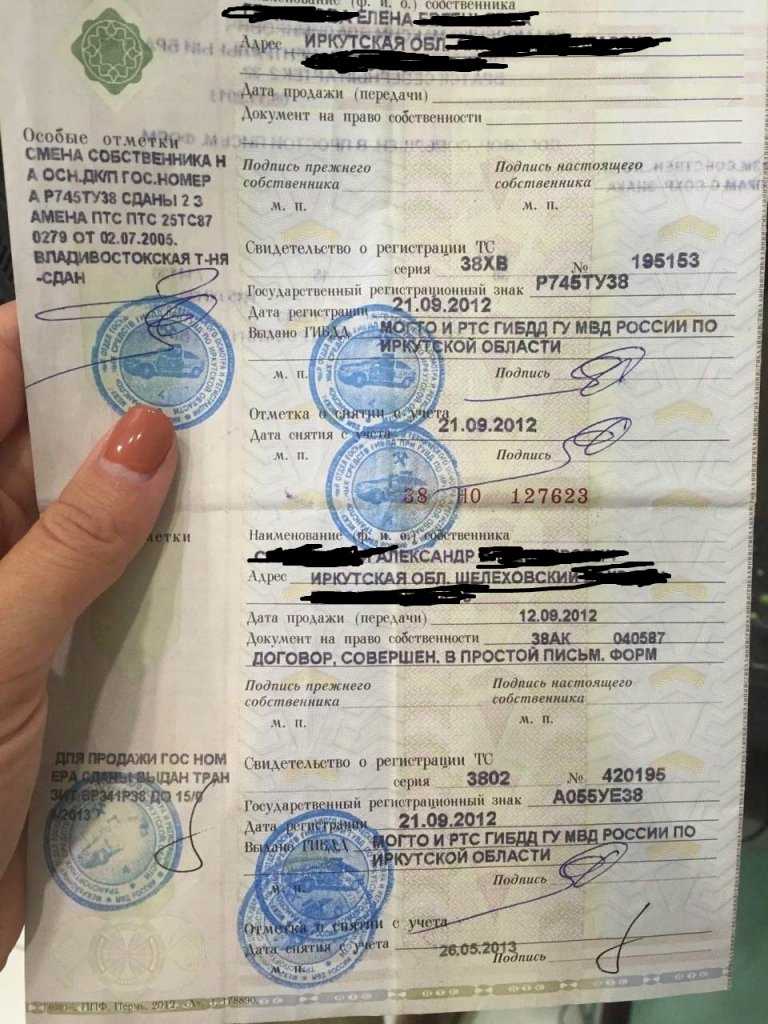 Наименование (ф. и. о.) собственника
ЕЛЕНА
Адрес ИРКУТСКАЯ ОБЛ
Дата продажи (передачи)
Документ на право собственности
Особые отметки
СМЕНА СОБСТВЕННИКА Н
А ОСН.ДК/П ГОС.НОМЕР
А Р745ТУ38 СДАНЫ 2 З
АМЕНА ПТС ПТС 25ТС87
0279 ОТ 02.07.2005.
ВЛАДИВОСТОКСКАЯ Т-НЯ
-СДАН
Подпись прежнего собственника
Подпись настоящего собственника
м. п.
м. п.
Свидетельство о регистрации ТС
серия 38ХВ № 195153
Государственный регистрационный знак Р745ТУ38
Дата регистрации 21.09.2012
Выдано ГИБДД МОГТО И РТС ГИБДД ГУ МВД РОССИИ ПО
ИРКУТСКОЙ ОБЛАСТИ
м. п. Подпись
Отметка о снятии с учета
Дата снятия с учета 21.09.2012
м. п. Подпись
38 НО 127623
етки
Наименование (ф. и. о.) собственника
АЛЕКСАНДР
Адрес ИРКУТСКАЯ ОБЛ. ШЕЛЕХОВСКИЙ
Дата продажи (передачи) 12.09.2012
Документ на право собственности 38АК 040587
ДОГОВОР, СОВЕРШЕН. В ПРОСТОЙ ПИСЬМ. ФОРМ
Подпись прежнего собственника
Подпись настоящего собственника
м. п.
м. п.
ДЛЯ ПРОДАЖИ ГОС НОМ
ЕРА СДАНЫ ВЫДАН ТРАН
ЗИТ ВР341Р38 ДО 15/0
/2013
Свидетельство о регистрации ТС
серия 3802 № 420195
Государственный регистрационный знак А055УЕ38
Дата регистрации 21.09.2012
Выдано ГИБДД МОГТО И РТС ГИБДД ГУ МВД РОССИИ ПО
ИРКУТСКОЙ ОБЛАСТИ
м. п. Подпись
Отметка о снятии с учета
Дата снятия с учета 26.05.2013
м. п. Подпись
ППФ, Пермь, 2012